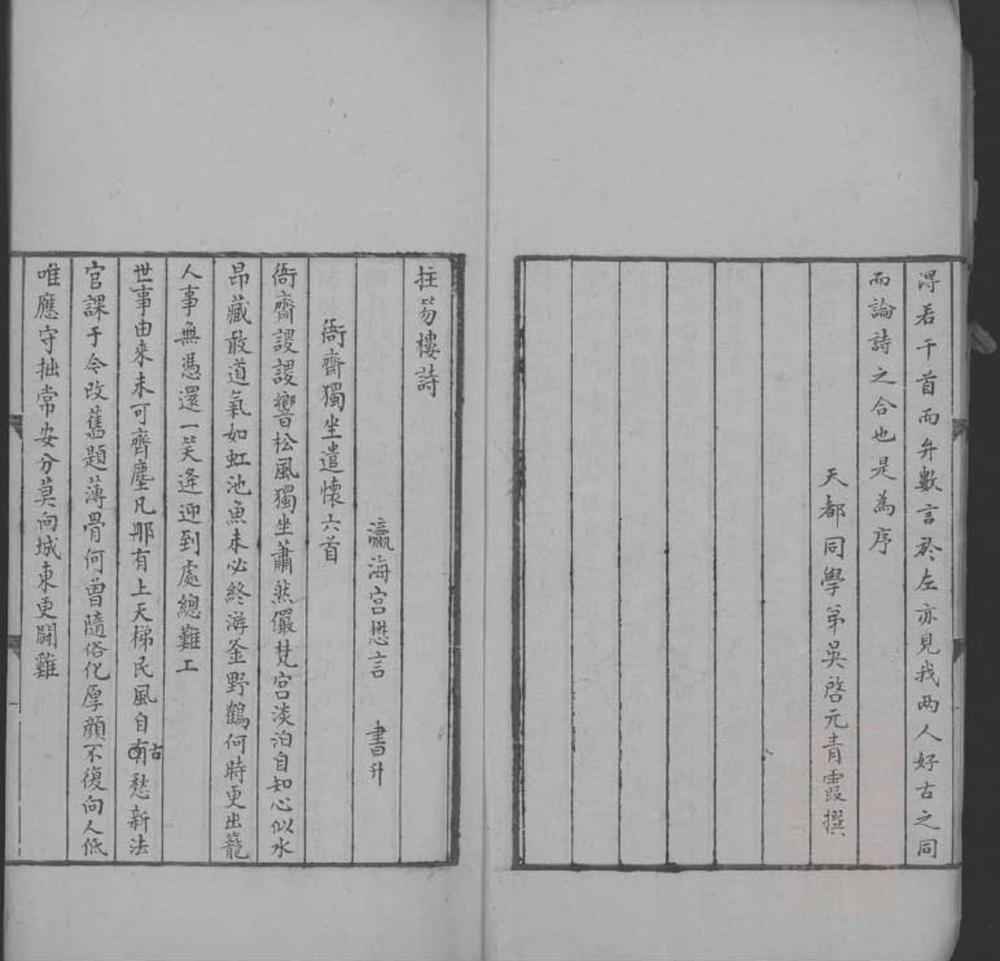 得若干首而弁數言於左亦見我两人好古之同
而論詩之合也是為序
天都同學弟吳啓元青霞撰
拄笏樓詩
瀛海宮懋言 書升
衙齋獨坐遣懷六首
衙齋謖謖響松風獨坐蕭然儼梵宮淡泊自知心似水
昂藏敢道氣如虹池魚未必終游釜野鶴何時更出籠
人事無憑還一笑逢迎到處總難工
世事由來未可齊塵凡那有上天梯民風自古愁新法
官課于今改舊題薄骨何曾隨俗化厚顏不復向人低
唯應守拙常安分莫向城東更鬭雞